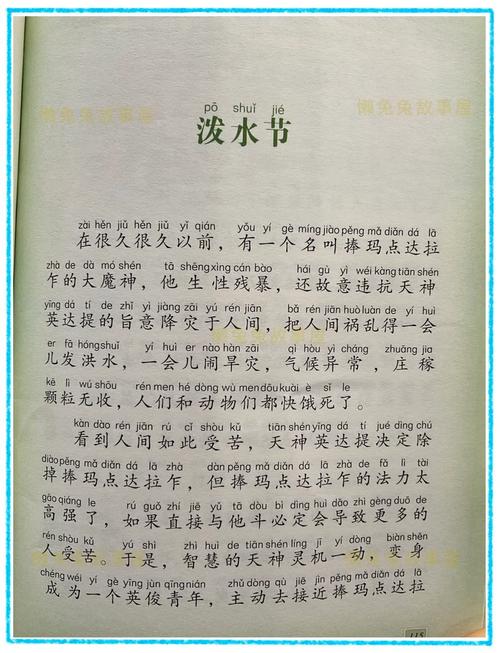 懒兔兔故事屋 懒兔兔故事屋
pō shuǐ jié
泼水节
zài hěn jiǔ hěn jiǔ yǐ qián yǒu yí gè míng jiào pěng mǎ diǎn dá lā
在很久很久以前，有一个名叫捧玛点达拉
zhà de dà mó shén tā shēng xìng cán bào hái gù yì wéi kàng tiān shén
乍的大魔神，他生性残暴，还故意违抗天神
yīng dá tí de zhǐ yì jiàng zāi yú rén jiān bǎ rén jiān huò luàn de yí huì
英达提的旨意降灾于人间，把人间祸乱得一会
er fā hóng shuǐ yí huì er nào hàn zāi qì hòu yì cháng zhuāng jia
儿发洪水，一会儿闹旱灾，气候异常，庄稼
kē lì wú shōu rén men hé dòng wù men dōu kuài è sǐ le
颗粒无收，人们和动物们都快饿死了。
kàn dào rén jiān rú cǐ shòu kǔ tiān shén yīng dá tí jué dìng chú
看到人间如此受苦，天神英达提决定除
diào pěng mǎ diǎn dá lā zhà dàn pěng mǎ diǎn dá lā zhà de fǎ lì tài
掉捧玛点达拉乍，但捧玛点达拉乍的法力太
gāo qiáng le rú guǒ zhí jiē yǔ tā dòu bì dìng huì dǎo zhì gèng duō de
高强了，如果直接与他斗必定会导致更多的
rén shòu kǔ yú shì zhì huì de tiān shén líng jī yí dòng biàn shēn
人受苦。于是，智慧的天神灵机一动，变身
chéng wéi yí gè yīng jùn qīng nián zhǔ dòng qù jiē jìn pěng mǎ diǎn dá lā
成为一个英俊青年，主动去接近捧玛点达拉
115